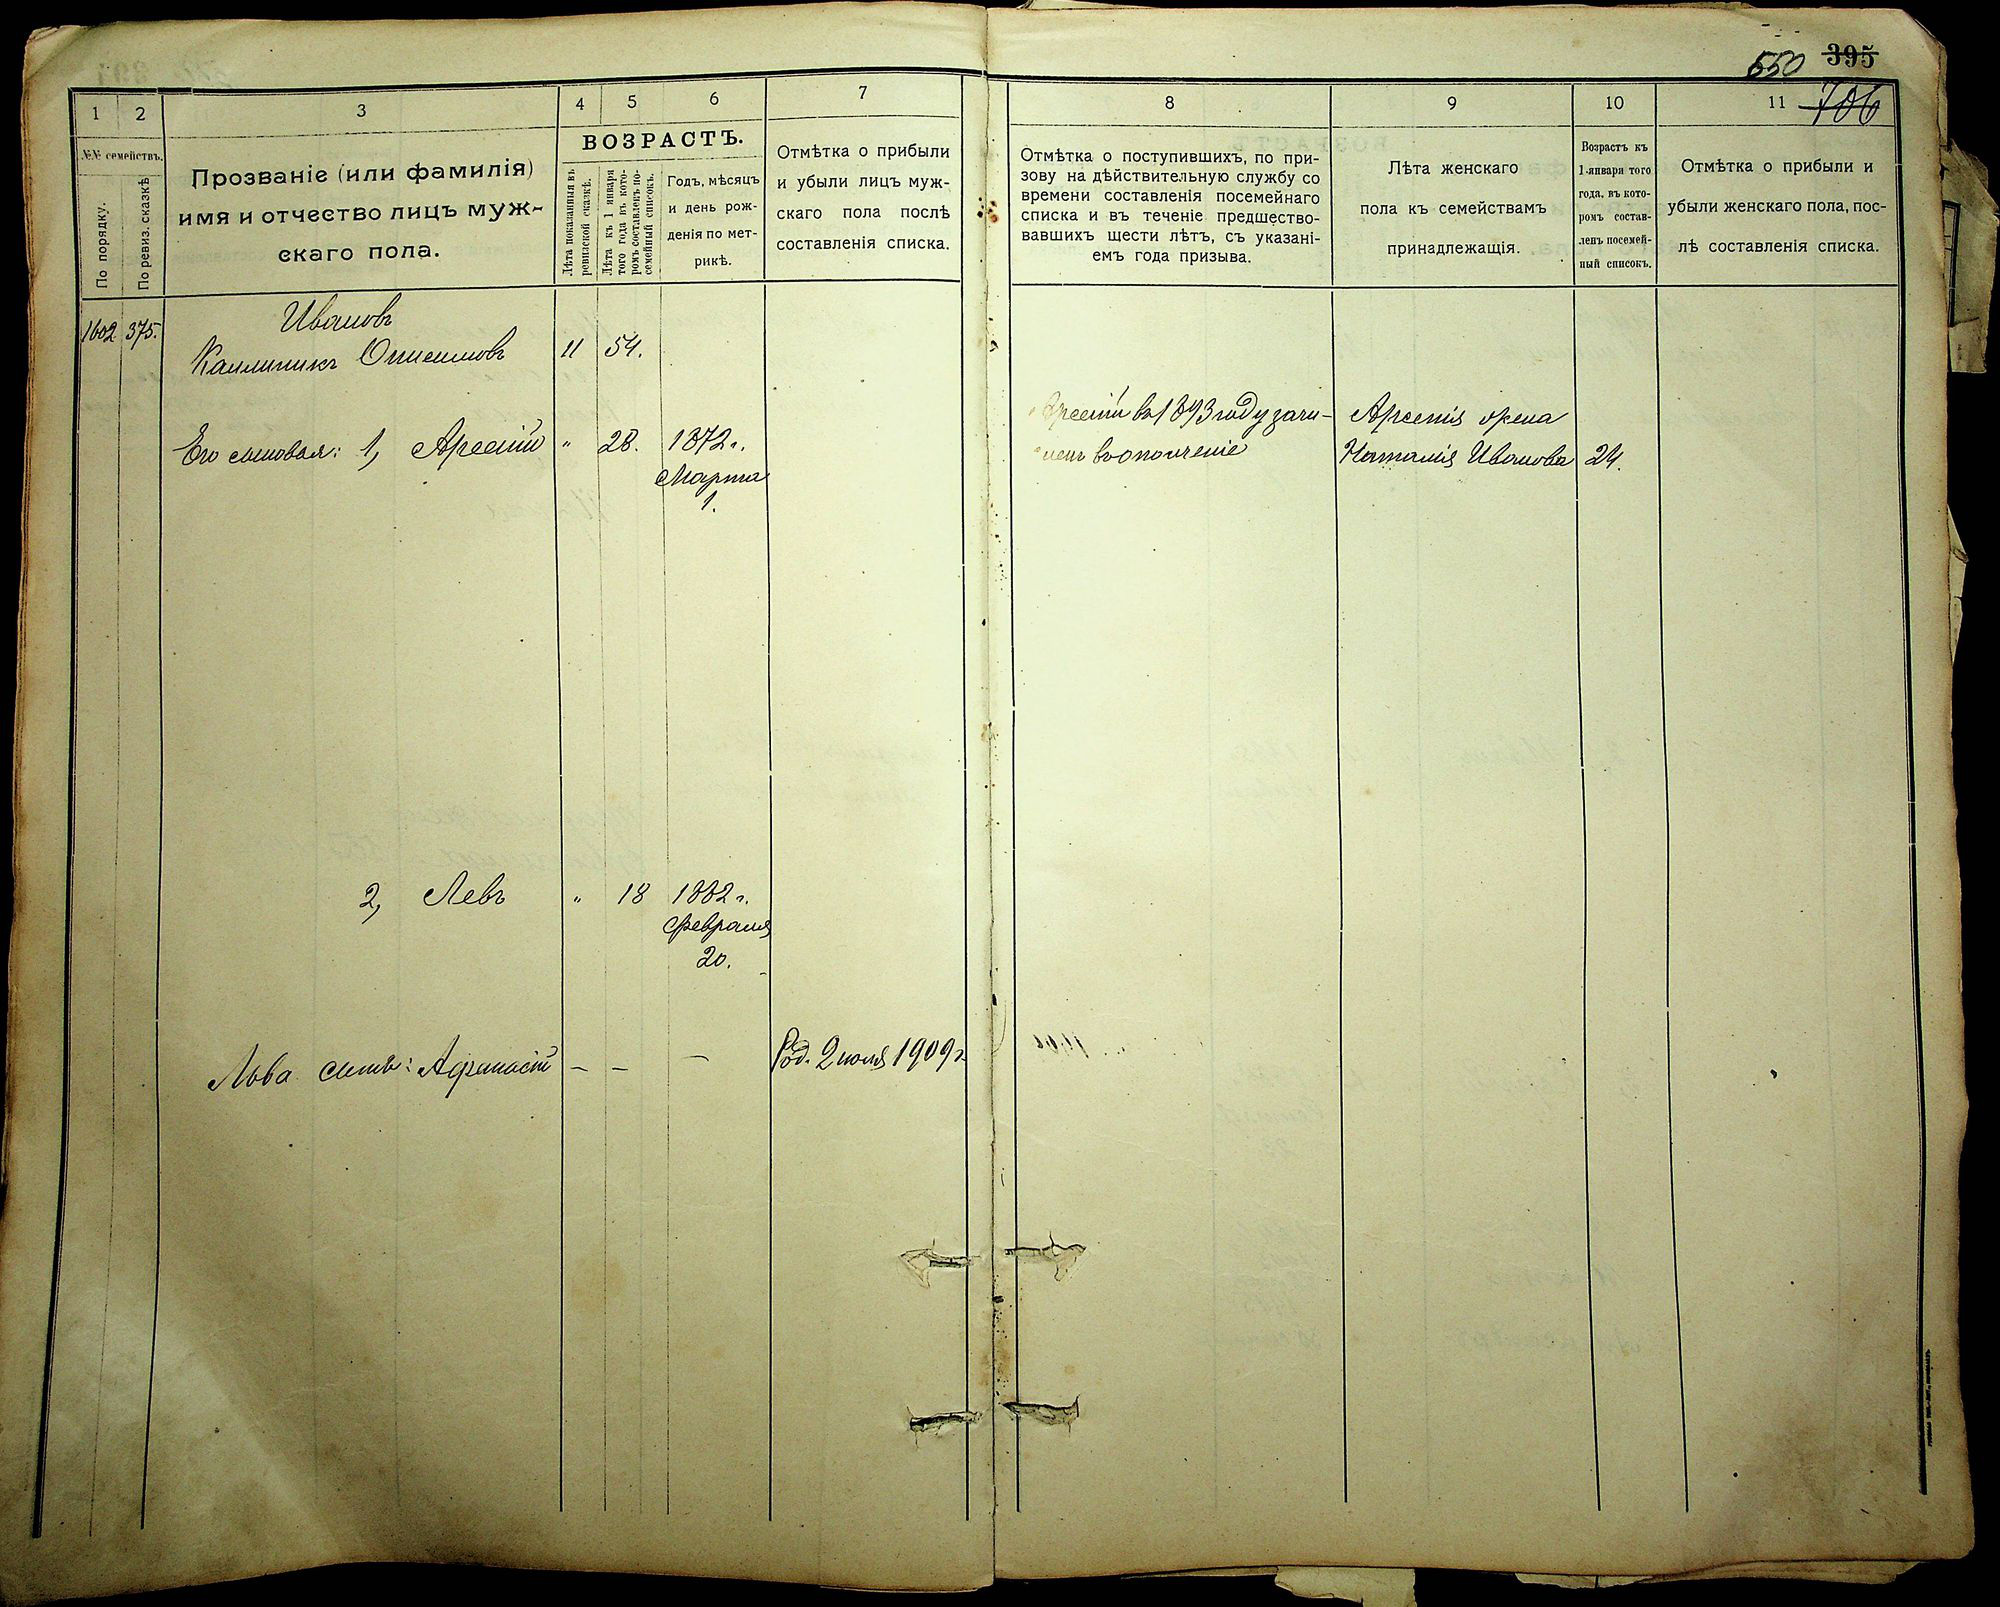 550 395
706
1
2
3
4
5
6
7
8
9
10
11
№№ семействъ.
По порядку.
По ревиз. сказкѣ
Прозваніе (или фамилія)
имя и отчество лицъ муж-
скаго пола.
ВОЗРАСТЪ.
Лѣта показанныя въ
ревизской сказкѣ.
Лѣта къ 1 января
того года въ кото-
ромъ составленъ по-
семейный списокъ.
Годъ, мѣсяцъ
и день рож-
денія по мет-
рикѣ.
Отмѣтка о прибыли
и убыли лицъ муж-
скаго пола послѣ
составленія списка.
Отмѣтка о поступившихъ, по при-
зову на дѣйствительную службу со
времени составленія посемейнаго
списка и въ теченіе предшество-
вавшихъ шести лѣтъ, съ указані-
емъ года призыва.
Лѣта женскаго
пола къ семействамъ
принадлежащія.
Возрастъ къ
1 января того
года, въ кото-
ромъ состав-
ленъ посемей-
ный списокъ.
Отмѣтка о прибыли и
убыли женскаго пола, пос-
лѣ составленія списка.
1602 375.
Ивановъ
Каллиникъ Онисимовъ 11 54.
Его сыновья: 1, Арсеній " 28. 1872 г.
Марта
1.
Арсеній въ 1893 году зачи-
ленъ въ ополченіе
Арсенія жена
Наталія Иванова 24.
2, Левъ " 18 1882 г.
Февраля
20.
Льва сынъ: Афанасій – – – Род. 2 июля 1909 г.